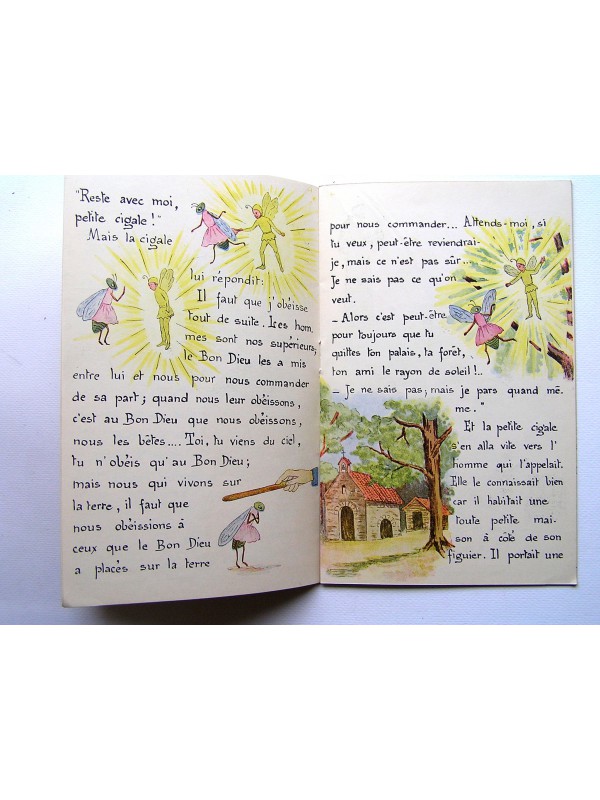 "Reste avec moi,
petite cigale!"
Mais la cigale
lui répondit:
Il faut que j'obéisse
tout de suite. Les hom.
mes sont nos supérieurs;
le Bon Dieu les a mis
entre lui et nous pour nous commander
de sa part; quand nous leur obéissons,
c'est au Bon Dieu que nous obéissons,
nous les bêtes.... Toi, tu viens du ciel,
tu n'obéis qu'au Bon Dieu;
mais nous qui vivons sur
la terre, il faut que
nous obéissions à
ceux que le Bon Dieu
a placés sur la terre
pour nous commander... Attends-moi, si
tu veux, peut-être reviendrai-
je, mais ce n'est pas sûr...
Je ne sais pas ce qu'on
veut.
- Alors c'est peut-être
pour toujours que tu
quittes ton palais, ta forêt,
ton ami le rayon de soleil!..
- Je ne sais pas; mais je pars quand mê.
me."
Et la petite cigale
s'en alla vite vers l'
homme qui l'appelait.
Elle le connaissait bien
car il habitait une
toute petite mai-
son à côté de son
figuier. Il portait une